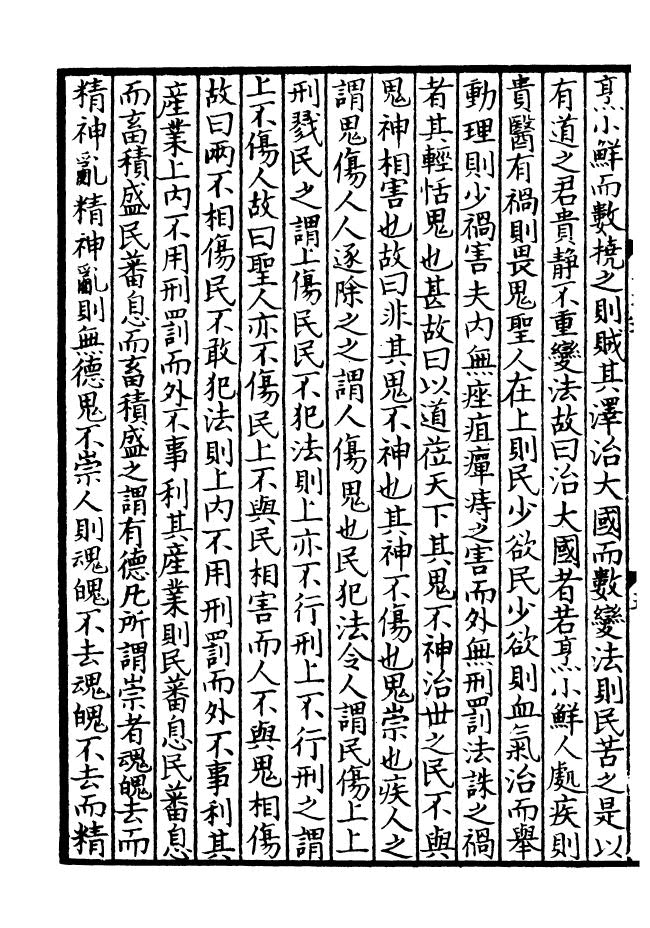 烹小鮮而數撓之則賊其澤治大國而數變法則民苦之是以
有道之君貴静不重變法故曰治大國者若烹小鮮人處疾則
貴醫有禍則畏鬼聖人在上則民少欲民少欲則血氣治而舉
動理則少禍害夫内無痤疽癉痔之害而外無刑罰法誅之禍
者其輕恬鬼也甚故曰以道莅天下其鬼不神治世之民不與
鬼神相害也故曰非其鬼不神也其神不傷也鬼祟也疾人之
謂鬼傷人人逐除之之謂人傷鬼也民犯法令人謂民傷上上
刑戮民之謂上傷民民不犯法則上亦不行刑上不行刑之謂
上不傷人故曰聖人亦不傷民上不與民相害而人不與鬼相傷
故曰兩不相傷民不敢犯法則上内不用刑罰而外不事利其
産業上内不用刑罰而外不事利其産業則民蕃息民蕃息
而畜積盛民蕃息而畜積盛之謂有德凡所謂祟者魂魄去而
精神亂精神亂則無德鬼不祟人則魂魄不去魂魄不去而精